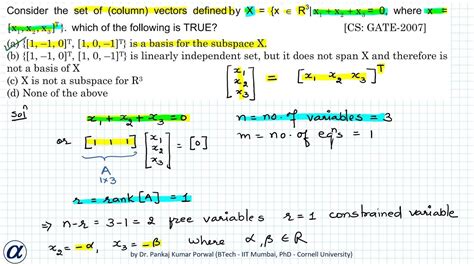 Consider the set of (column) vectors defined by X = {x ∈ R³|x₁ + x₂ + x₃ = 0, where x =
[x₁, x₂, x₃]ᵀ}. which of the following is TRUE? [CS: GATE-2007]
(a) {[1, –1, 0]ᵀ, [1, 0, –1]ᵀ} is a basis for the subspace X.
(b) {[1, –1, 0]ᵀ, [1, 0, –1]ᵀ} is linearly independent set, but it does not span X and therefore is
not a basis of X
(c) X is not a subspace for R³
(d) None of the above
[x₁ x₂ x₃] = [x₁ x₂ x₃]ᵀ
Solⁿ
x₁ + x₂ + x₃ = 0
n = no. of variables = 3
or [1 1 1] [x₁ x₂ x₃] = [0]
m = no. of eqⁿs = 1
A
1x3
r = rank[A] = 1
⇒ n-r = 3-1 = 2 free variables r = 1 constrained variable
x₂ = -α, x₃ = -β where α, β ∈ R
α
by Dr. Pankaj Kumar Porwal (BTech - IIT Mumbai, PhD - Cornell University)